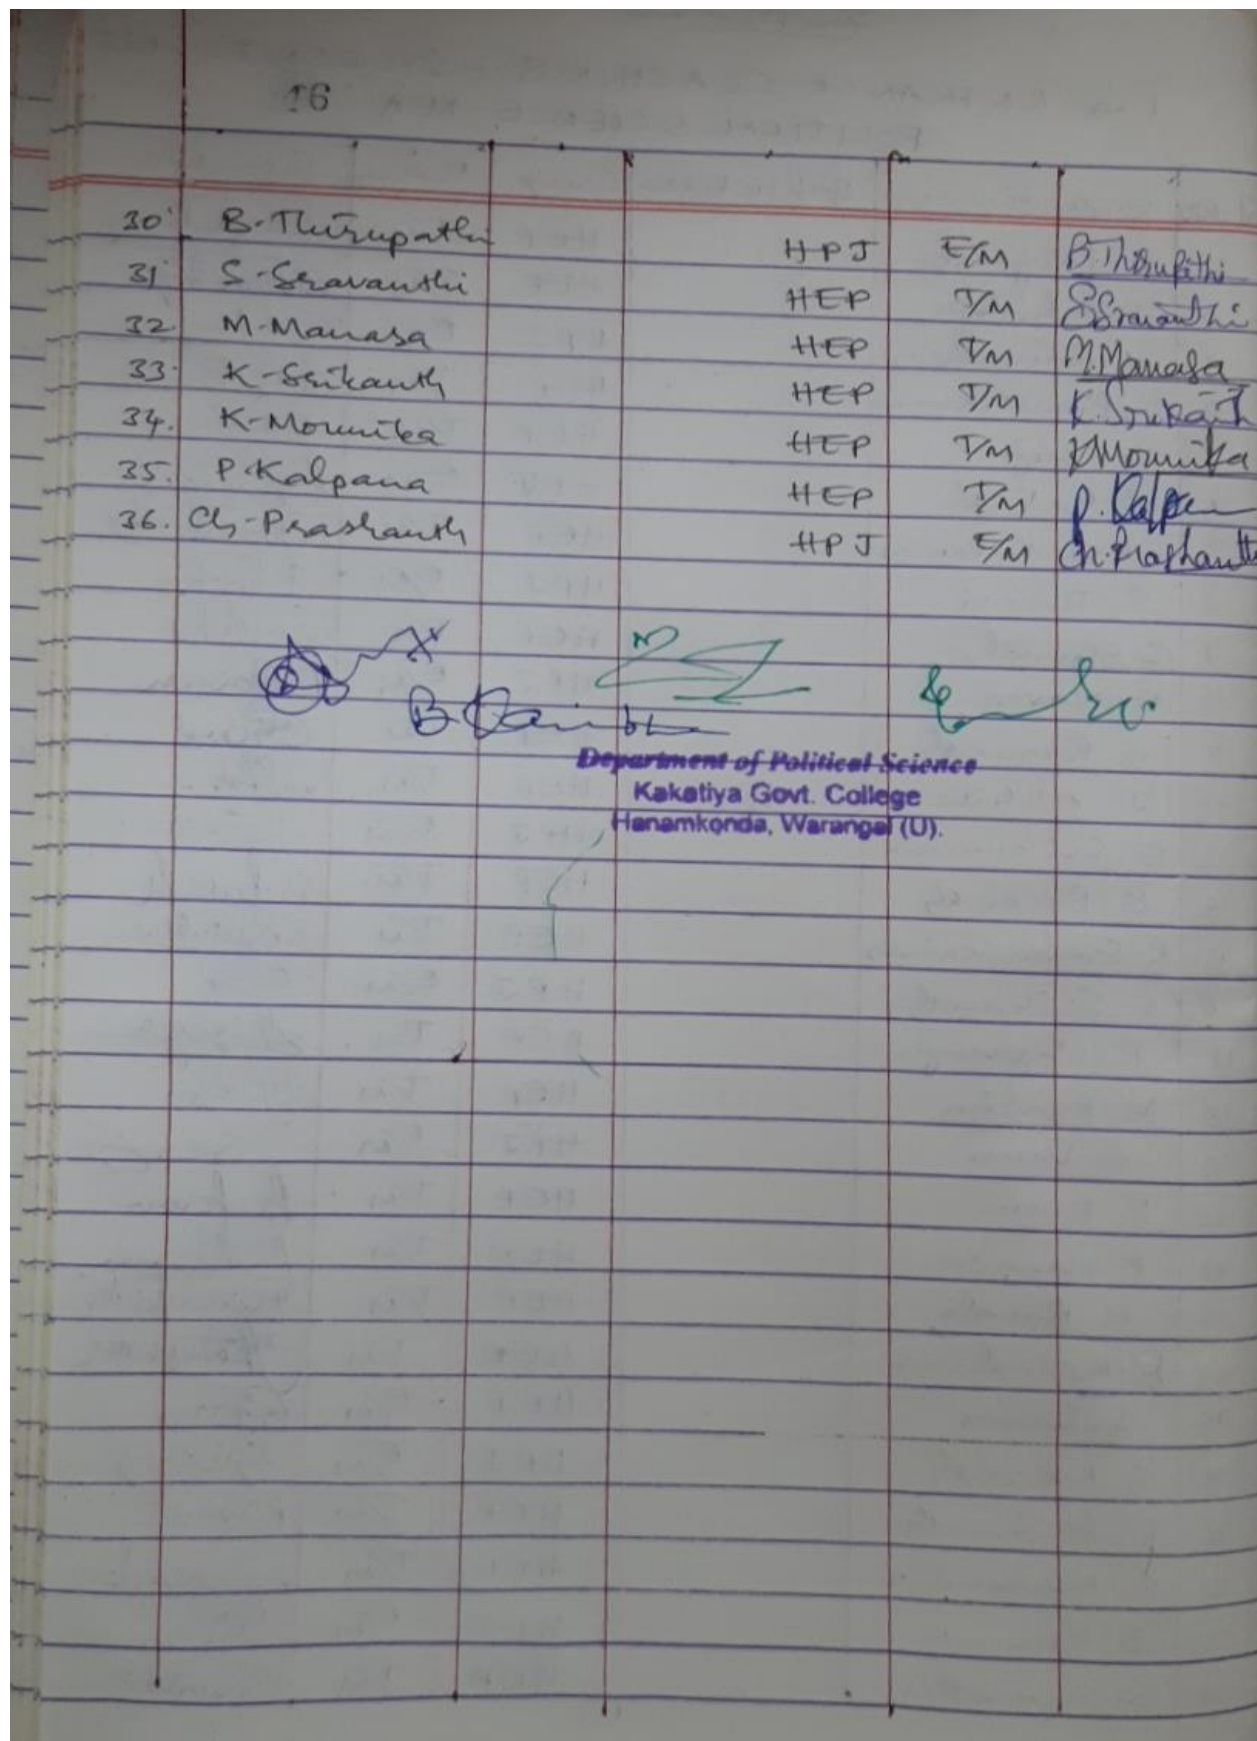 16
30. B. Thirupathi HPJ E/M B. Thirupathi
31. S. Sravanthi HEP T/M S. Sravanthi
32. M. Manasa HEP T/M M. Manasa
33. K. Srikanth HEP T/M K. Srikanth
34. K. Mounika HEP T/M K. Mounika
35. P. Kalpana HEP T/M P. Kalpana
36. Ch. Prashanth HPJ E/M Ch. Prashanth
Department of Political Science
Kakatiya Govt. College
Hanamkonda, Warangal (U).